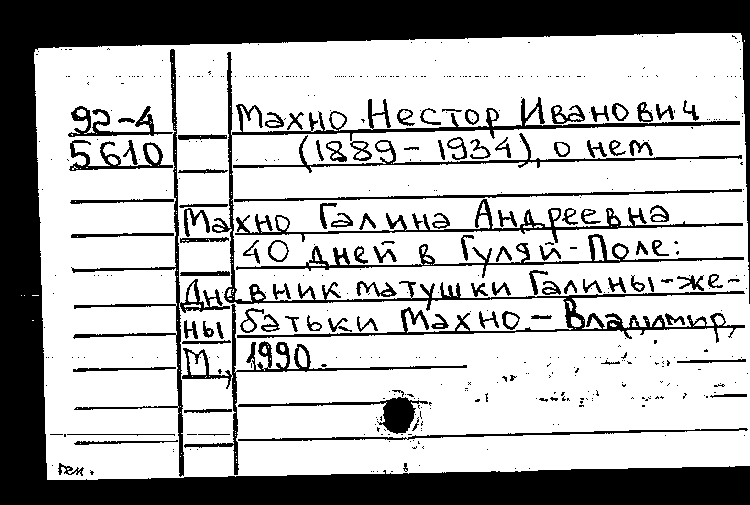 92-4 Махно, Нестор Иванович
5610 (1889 - 1934), о нем
Махно, Галина Андреевна.
40 дней в Гуляй-Поле:
Дневник матушки Галины-же-
ны батьки Махно. - Владимир,
М., 1990.
Ген.